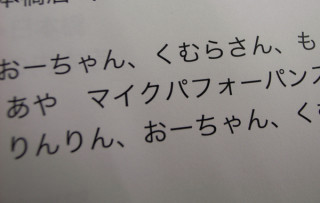 おーちゃん、くむらさん、も
あや　マイクパフォーパンス
りんりん、おーちゃん、く